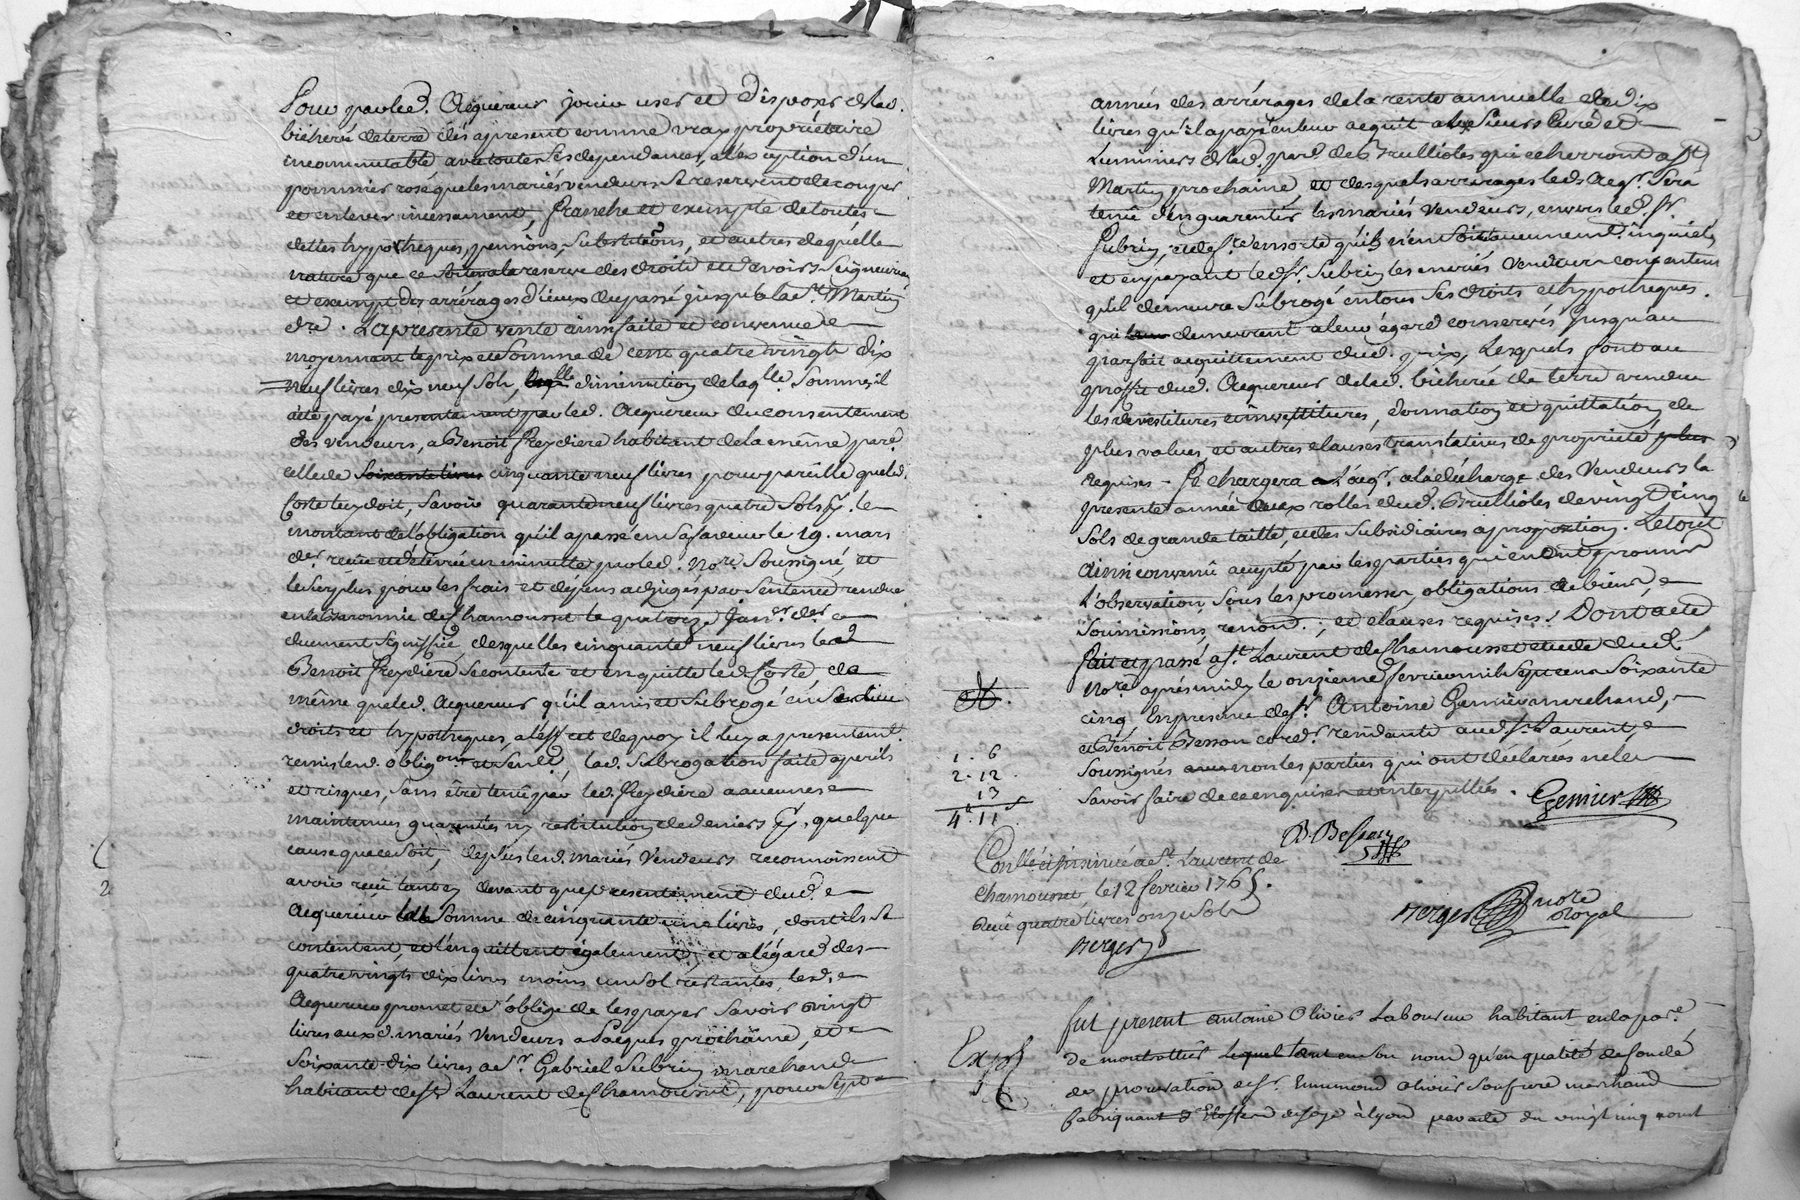 Pour par led. Acquereur jouir user et disposer de lad.
bicherée de terre dés apresent comme vray propriétaire
incommutable avec toutes ses dependances, al'exception d'un
pommier rosé que les mariés vendeurs se reservent de couper
et enlever incessament, franche et exempte de toutes
dettes hypotheques, pensions, substitõns, et autres de quelle
nature que ce soit a la reserve des droits et devoirs Seigneuriaux
et exempt des arrérages d'iceux du passé jusqu'a la St. Martin
dre. La presente vente ainsi faite et convenue
moyennant le prix et Somme de cent quatre vingt dix
neuf livres dix neuf Sols, en diminution de laqlle. Somme il
a été payé presentement par led. Acquereur du consentement
des vendeurs, a Benoit Freydiere habitant de la même parr.
celle de soixante livres cinquante neuf livres pour pareille que led.
Coste luy doit, Savoir quarante neuf livres quatre Sols pr. le
montant de l'obligation qu'il a passé en sa faveur le 19. mars
der. reçue et délivrée en minutte par led. Nore. Soussigné, et
le surplus pour les frais et dépens adjugés par Sentence rendue
en la Baronnie de Chamousset le quatorze Janer. der.
duement Signiffiée, desquelles cinquante neuf livres led.
Benoit Freydiere Se contente et en quitte led. Coste, de
même que led. Acquereur qu'il a mis et Subrogé en Ses lieu
droits et hypotheques, a l'effet de quoy il luy a presentemt.
remis lad. obligõn et Sentce., lad. Subrogation faite a perils
et risques, Sans être tenû par led. Freydiere a aucunes
maintenues garanties ny restitution de deniers pr. quelque
cause que ce Soit, de plus lesd. mariés Vendeurs reconnoissent
avoir reçu tant cy devant que presentement dud.
Acquereur la Somme de cinquante une livres, dont ils se
contentent, et l'en quittent également, et a légard des
quatre vingts dix livres moins un Sol restantes, led.
Acquereur promet et s'oblige de les payer Savoir vingt
livres auxd. mariés Vendeurs a Paques prochaine, et
Soixante dix livres a Sr. Gabriel Subrin marchand
habitant de St. Laurent de Chamousset, pour sept
2
années des arrérages de la rente annuelle de dix
livres qu'il a payé en leur acquit aux Sieurs Curé et
Luminiers de lad. parr. de Brullioles qui echerront a St.
Martin prochaine, et desquels arrerages led. Acqr. Sera
tenû d'en garentir les mariés Vendeurs, envers led. Sr.
Subrin, de Sorte qu'ils n'en Soient aucunement inquietés
et en payant led. Sr. Subrin les mariés Vendeurs consentent
qu'il demeure Subrogé en tous Ses droits et hypotheques
qui demeurent a leur égard conservés jusqu'au
parfait acquittement dud. prix, Lesquels font au
proffit dud. Acquereur de lad. bicherée de terre vendue
les devestitures investitures, donnation et quittation de
plus values, et autres clauses translatives de propriété plus
requises - Se chargera L'acqr. a la décharge des Vendeurs la
presente année aux rolles dud. Brullioles de vingt cinq
Sols de grande taille, et des Subsidiaires a proportion. Le tout
ainsi convenû accepté par les parties qui en ont promis
l'observation, Sous les promesses, obligations de biens,
Soumissions, renõn.; et clauses requises. Dont acte
fait et passé a St. Laurent de Chamousset etude dud.
Nore. après midy le onzieme fevrier mil Sept cens Soixante
cinq, En presence de Sr. Antoine Genier marchand,
et Benoit Besson cordr. residants aud. St. Laurent
Soussignés non les parties qui ont déclarées ne le
Savoir faire de ce enquises et interpellées.
Genier
B. Besson
Berger
nore
royal
1. 6
2. 12
13
4. 11
Conllé et insinué a St. Laurent de
Chamousset, le 12 fevrier 1765.
Reçu quatre livres onze Sols
Berger
fut present antoine Olivier Laboureur habitant en la pare.
de montrottier Lequel tant en son nom qu'en qualité de fondé
de procuration de Sr. Ennemond Olivier son frere marchand
fabriquant d'Etoffes de soye à Lyon passée du vingt cinq
Expé